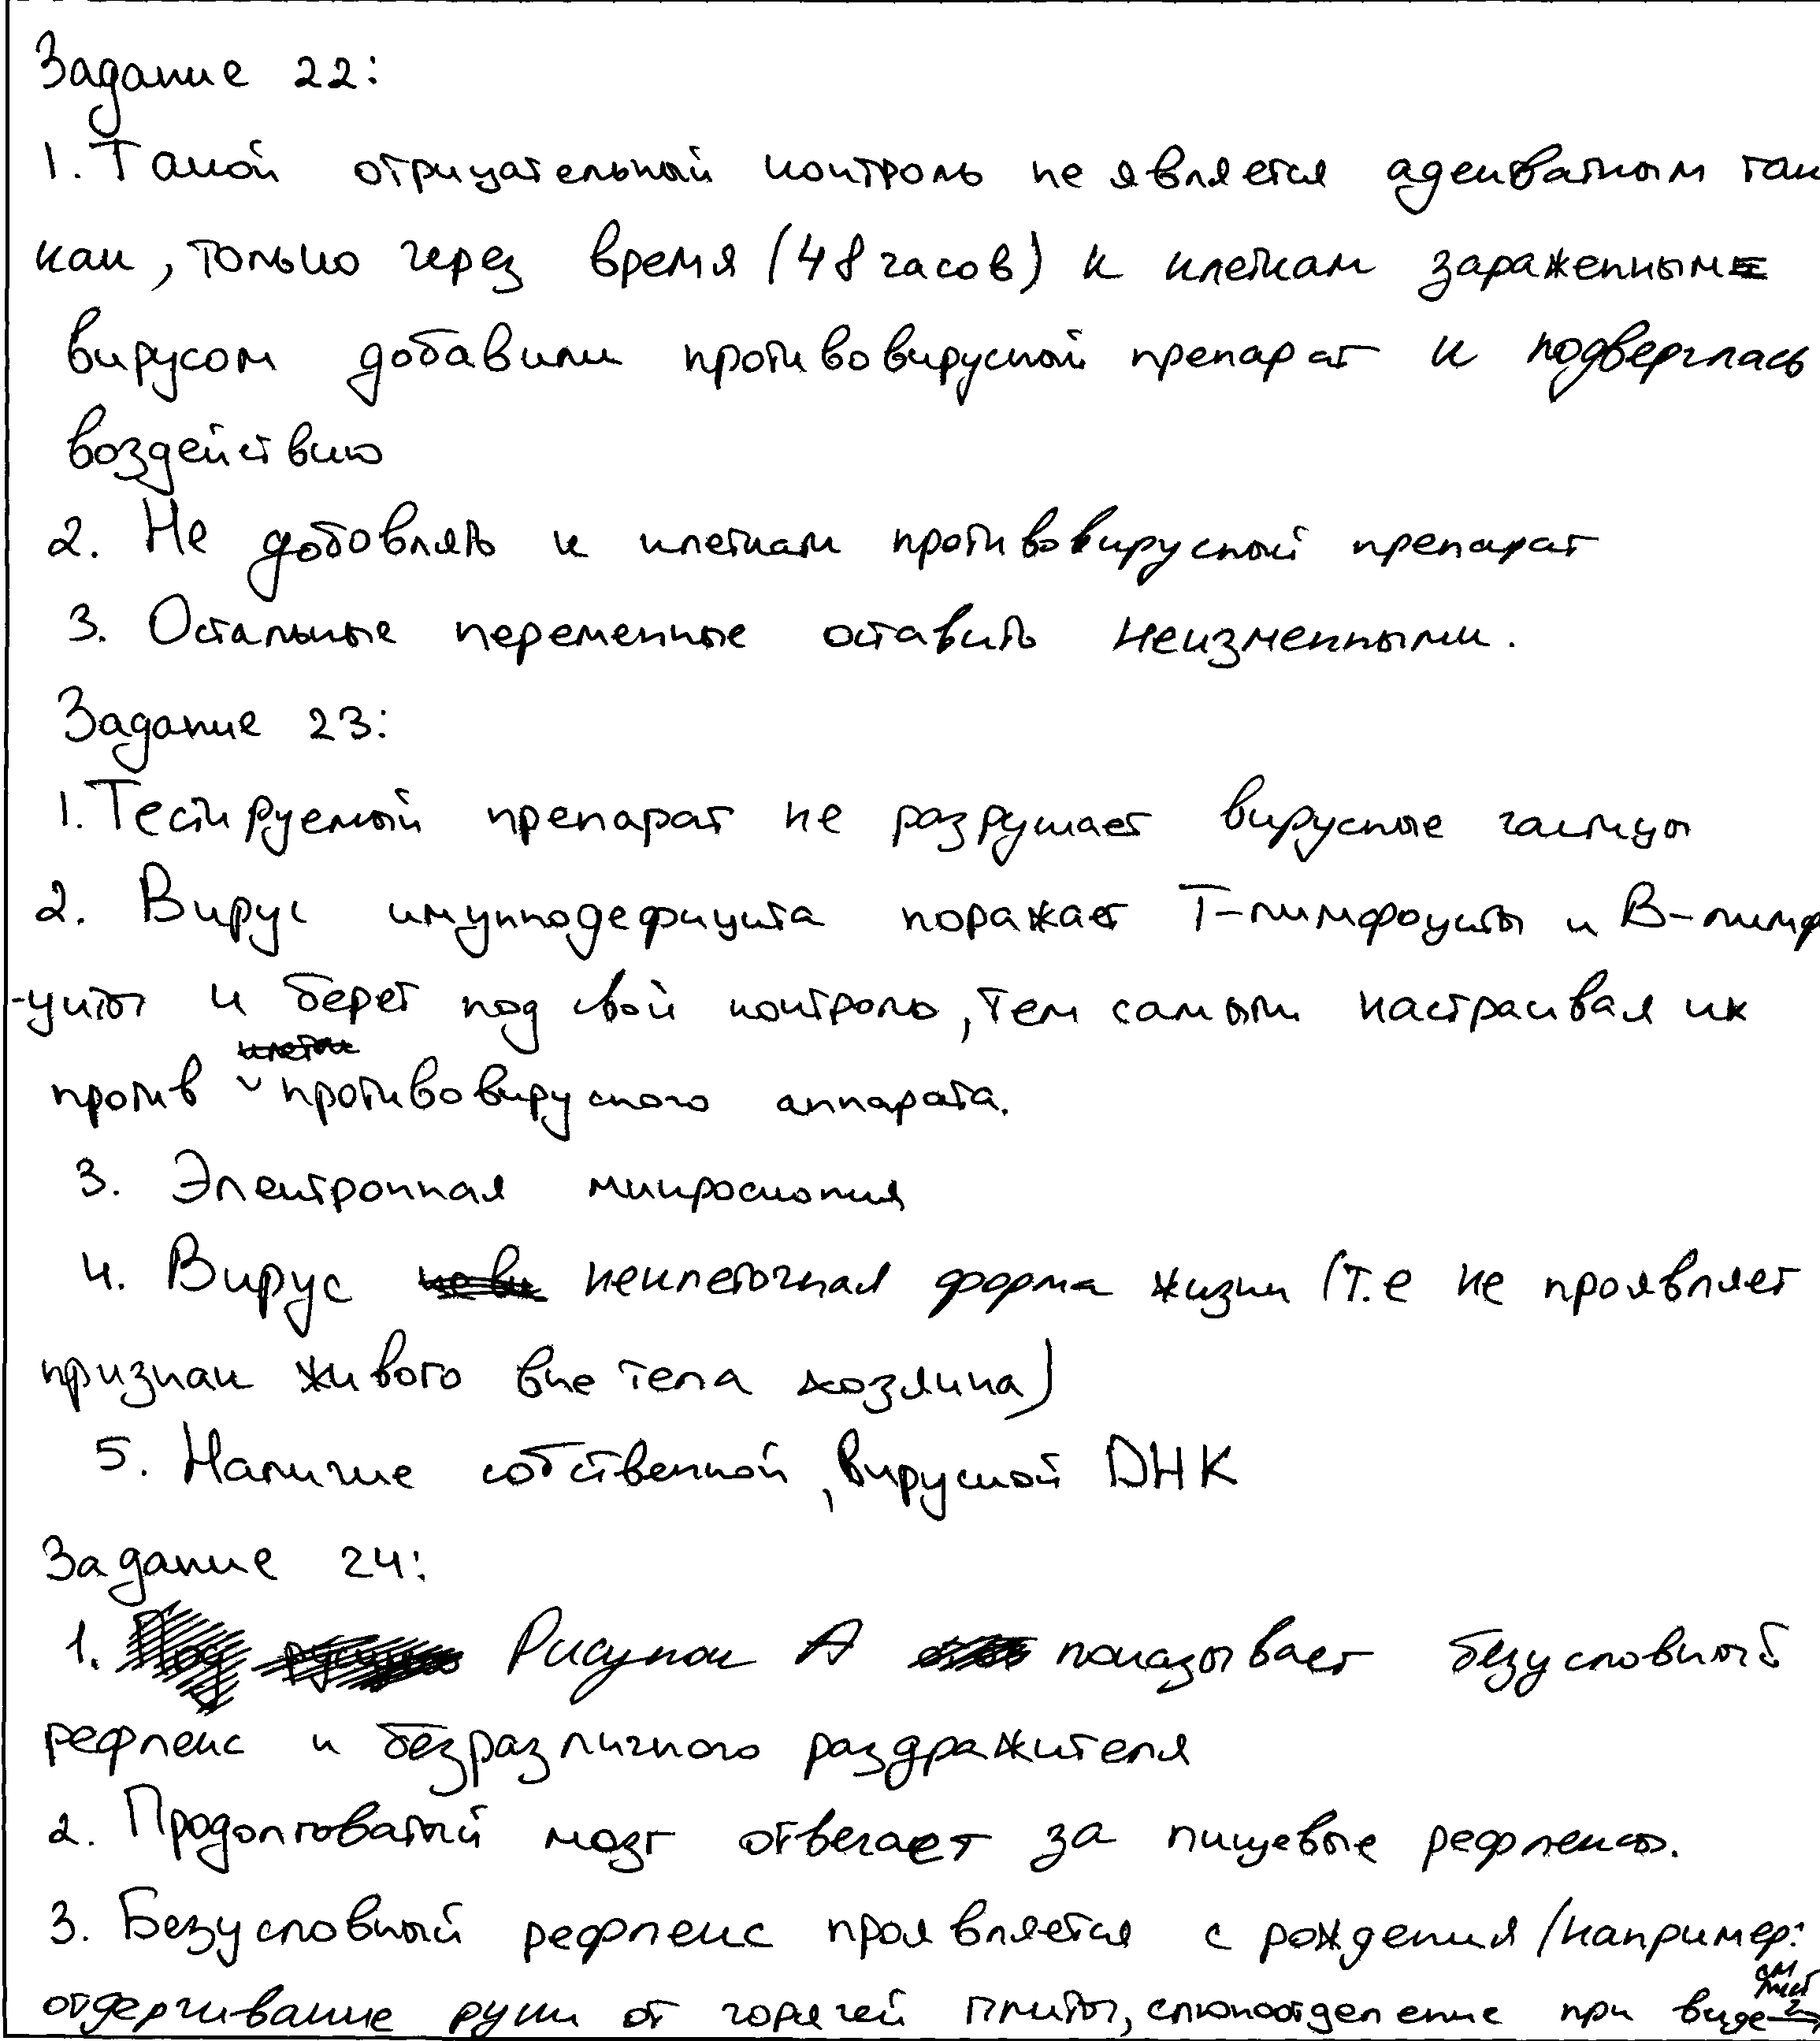 Задание 22:
1. Такой отрицательный контроль не является адекватным так
как, только через время (48 часов) к клеткам зараженным
вирусом добавили противовирусный препарат и подверглась
воздействию
2. Не добовлять к клеткам противовирусный препарат
3. Остальные переменные оставить неизменными.
Задание 23:
1. Тестируемый препарат не разрушает вирусные частицы
2. Вирус имунодефицита поражает Т-лимфоциты и В-лимф
-циты и берет под свой контроль, тем самым настраивая их
против противовирусного аппарата.
3. Электронная микроскопия
4. Вирус неклеточная форма жизни (т.е не проявляет
признак живого вне тела хозяина)
5. Наличие собственной, вирусной ДНК
Задание 24:
1. Рисунок А показывает безусловный
рефлекс и безразличного раздражителя
2. Продолговатый мозг отвечает за пищевые рефлексы.
3. Безусловный рефлекс проявляется с рождения (например:
отдергивание руки от горячей плиты, слюноотделение при виде
см лист 2